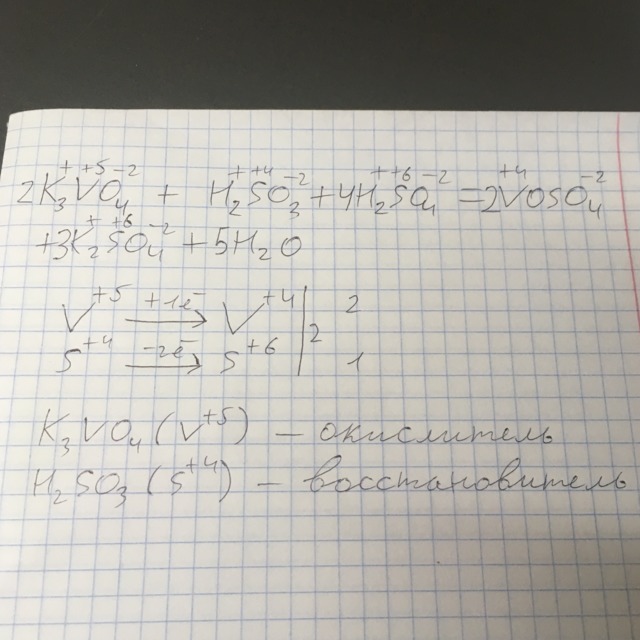 2K₃⁺V⁺⁵O₄⁻² + H₂⁺S⁺⁴O₃⁻² + 4H₂⁺S⁺⁶O₄⁻² = 2V⁺⁴OSO₄⁻²
+3K₂⁺S⁺⁶O₄⁻² + 5H₂O
V⁺⁵ +1ē→ V⁺⁴ | 2 2
S⁺⁴ -2ē→ S⁺⁶ | 1
K₃VO₄ (V⁺⁵) – окислитель
H₂SO₃ (S⁺⁴) – восстановитель